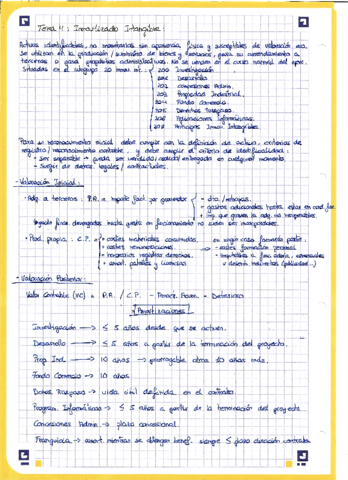 Tema 4: Inmovilizado Intangible.
Activos identificables, no monetarios sin apariencia física y susceptibles de valoración eca.
Se utilizan en la producción / suministro de bienes y servicios, para su arrendamiento a
terceros o para propósitos administrativos. No se venden en el curso normal del oper.
Situadas en el subgrupo 20
200 Investigación
201 Desarrollo
202 Concesiones Admin.
203 Propiedad Industrial.
204 Fondo Comercio.
205 Derechos Traspaso
206 Aplicaciones Informáticas.
209 Anticipos Inmov. Intangibles
Para su reconocimiento inicial debe cumplir con la definición de activo, criterios de
registro / reconocimiento contable, y debe cumplir el criterio de identificabilidad:
- ser separable → pueda ser vendido/cedido/entregado en cualquier momento.
- surgir de dchos. legales / contractuales.
- Valoración Inicial:
· Adq. a terceros: P.A. = Importe fact. por proveedor
- dtos / rebajas.
+ gastos adicionales hasta estar en cond. fun
+ imp. que graven la adq. no recuperables.
hasta puesta en funcionamiento no suelen ser incorporados.
· Prod. propia: C.P. =
+ costes materiales consumidos.
+ costes remuneraciones
+ honorarios registrar derechos.
+ amort. patentes y licencias
en ningún caso formarán parte:
- costes formación personal
- administrativos
- Valoración Posterior:
Valor Contable (VC) = P.A. / C.P. - Amort. Acum. - Deterioro
Amortizaciones
Investigación → ≤ 5 años desde que se activen.
Desarrollo → ≤ 5 años a partir de la terminación del proyecto.
Prop. Ind. → 10 años → prorrogable otros 10 años más.
Fondo Comercio → 10 años.
Dchos Traspaso → vida útil definida en el contrato.
Program. Informáticos → ≤ 5 años a partir de la terminación del proyecto
Concesiones Admin → plazo concesional.
Franquicia → amort. mientras se obtengan benef. siempre ≤ plazo duración contrato